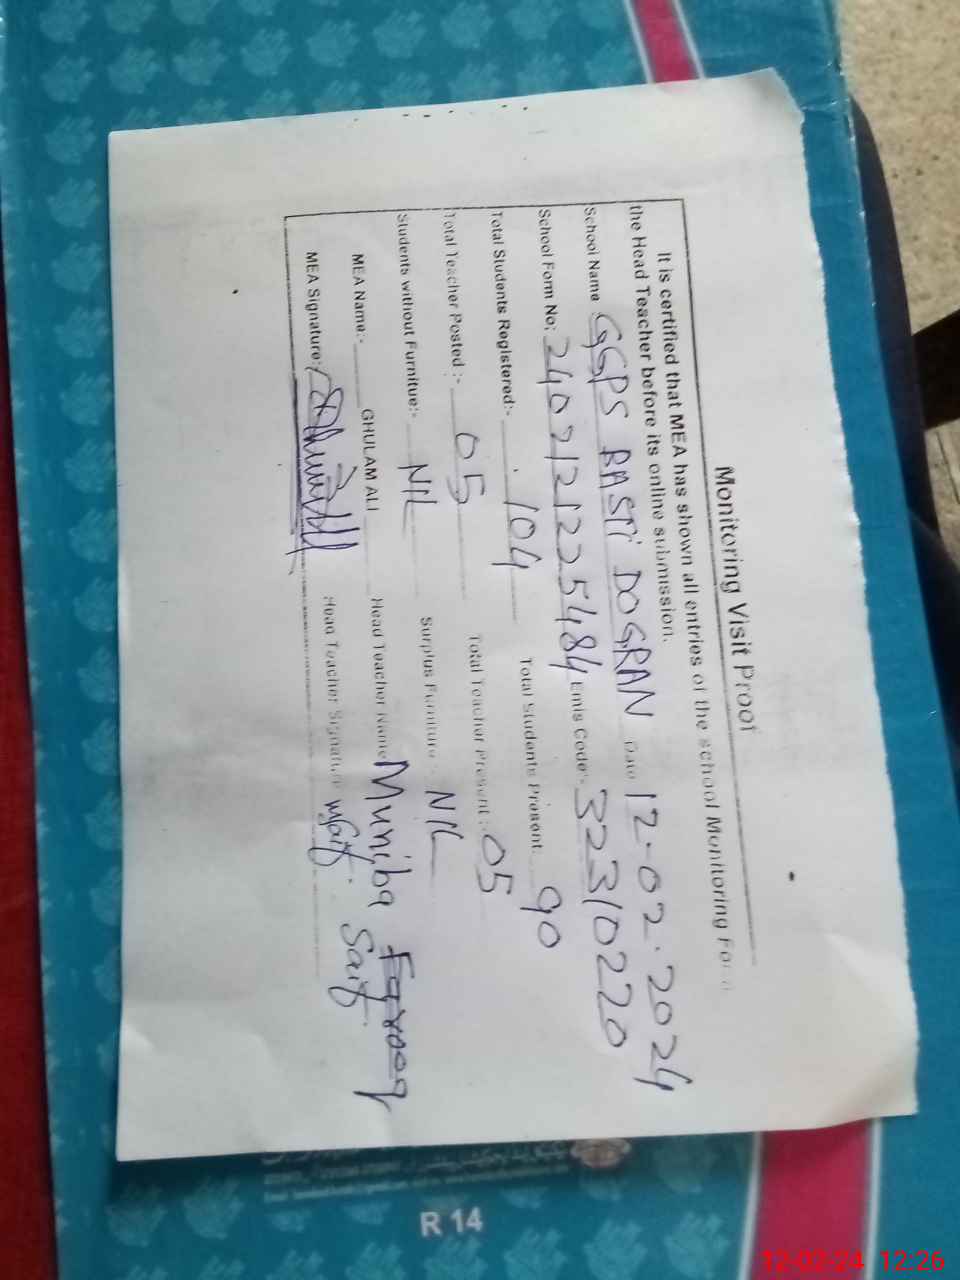 Monitoring Visit Proof
It is certified that MEA has shown all entries of the school Monitoring Form
the Head Teacher before its online submission.
School Name : GGPS BASTI DOGRAN Date 12.02.2024
School Form No: 2402121225484 Emis Code:- 32310220
Total Students Registered:- 104 Total Students Present: 90
Total Teacher Posted :- 05 Total Teacher Present :- 05
Students without Furnitue:- NIL Surplus Furniture :- NIL
MEA Name:- GHULAM ALI Head Teacher Name Muniba Farooq
Saif.
MEA Signature: Head Teacher Signature
R 14
12-02-24 12:26